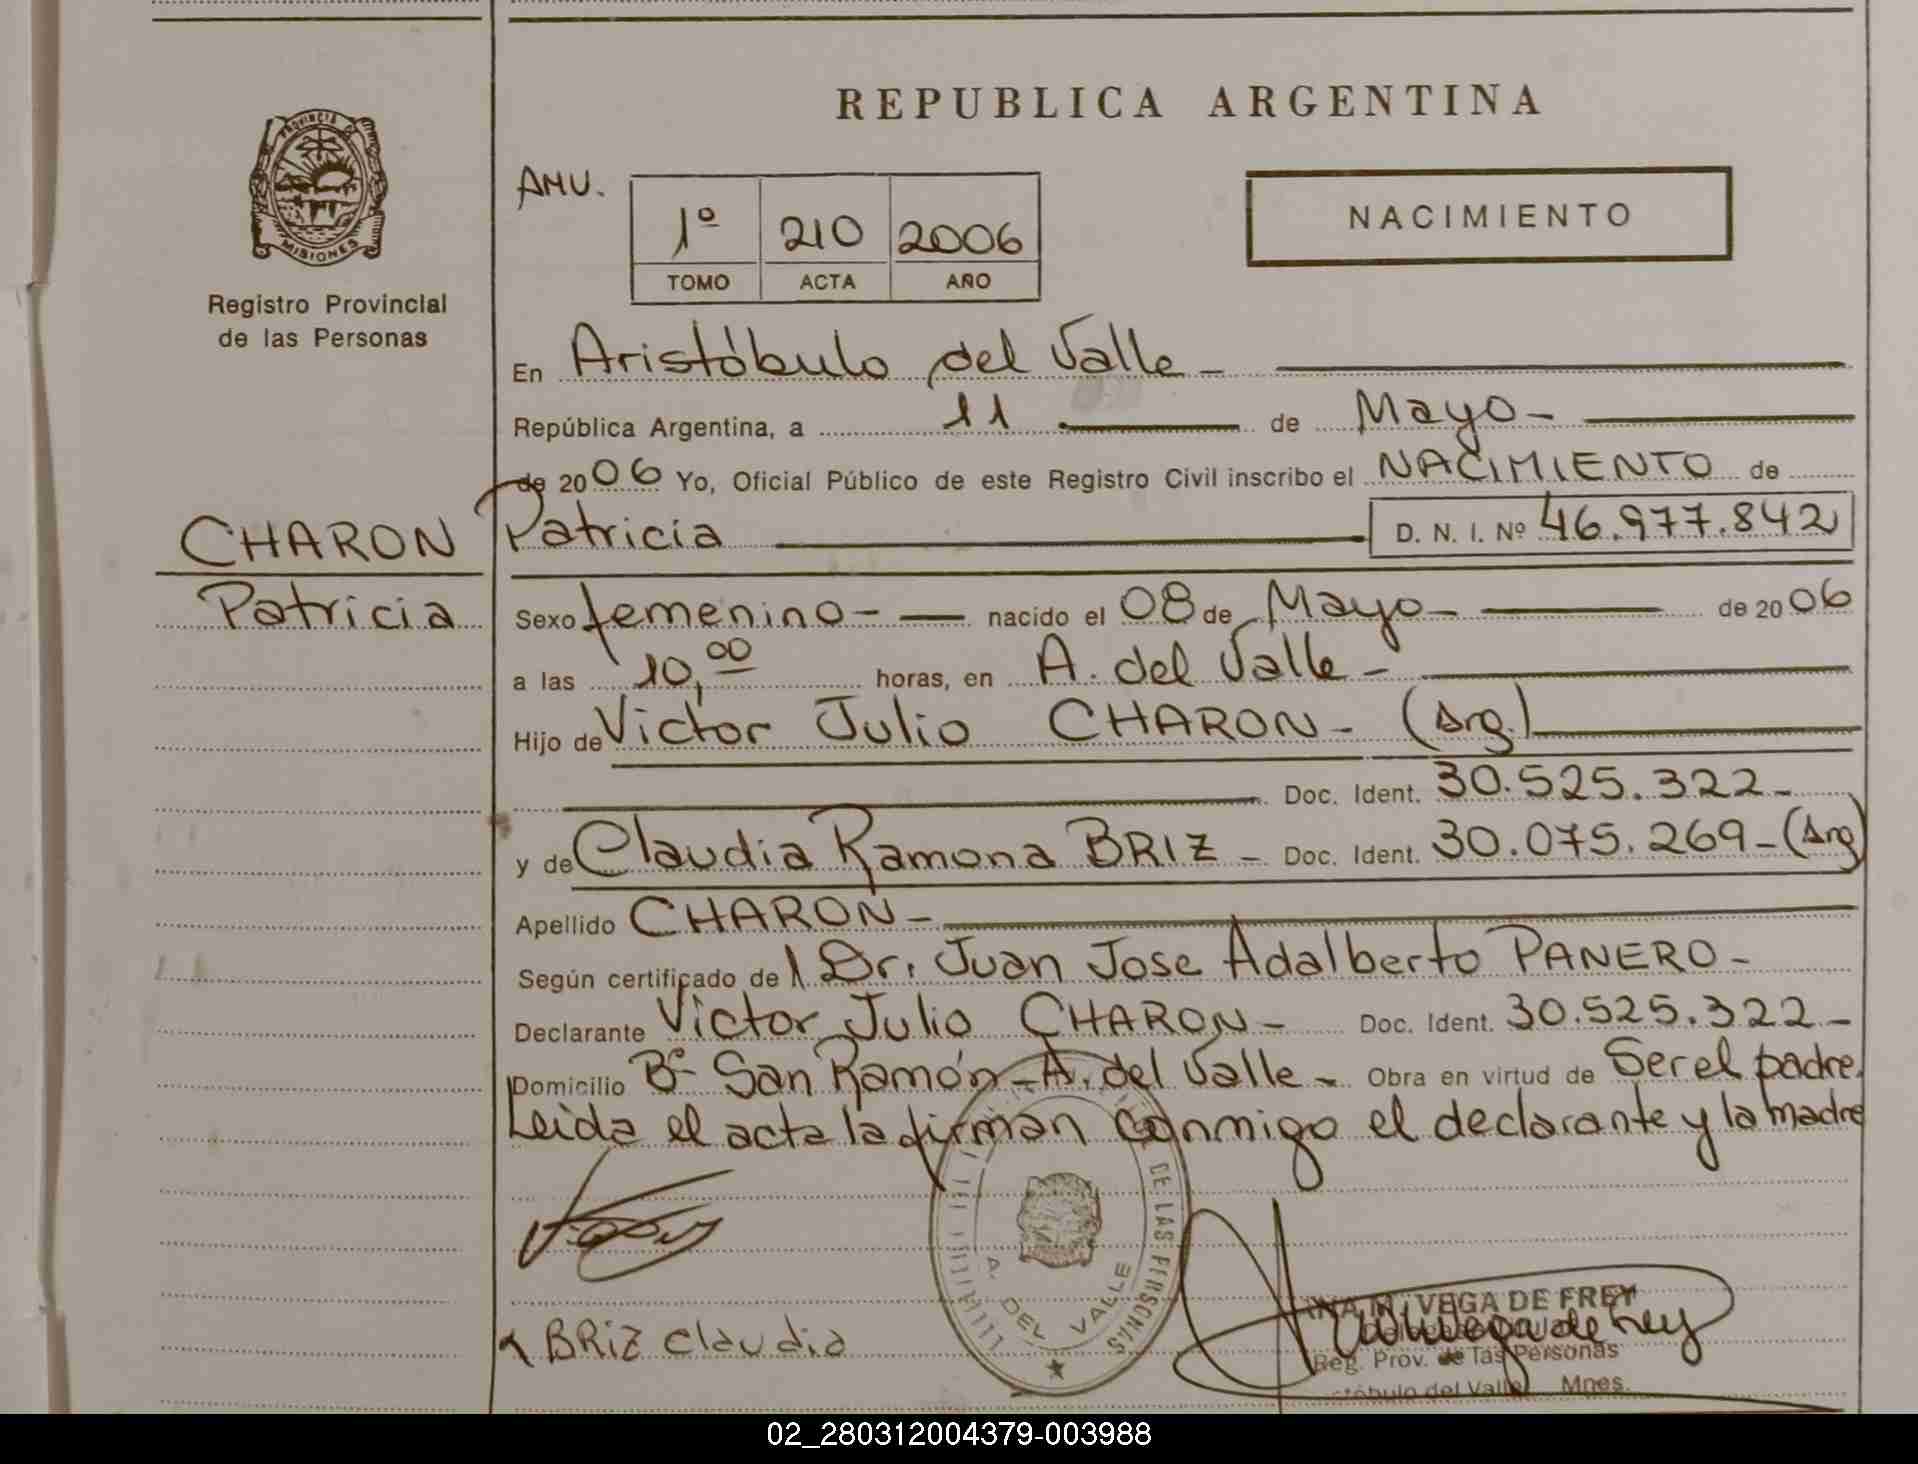 REPUBLICA ARGENTINA
PROVINCIA DE
MISIONES
Registro Provincial
de las Personas
ANU.
1º 210 2006
TOMO ACTA AÑO
NACIMIENTO
En Aristóbulo del Valle -
República Argentina, a 11 de Mayo -
de 2006 Yo, Oficial Público de este Registro Civil inscribo el NACIMIENTO de
CHARON
Patricia D. N. I. Nº 46.977.842
Patricia
Sexo femenino - nacido el 08 de Mayo - de 2006
a las 10,00 horas, en A. del Valle -
Hijo de Victor Julio CHARON - (Arg.)
Doc. Ident. 30.525.322 -
y de Claudia Ramona BRIZ - Doc. Ident. 30.075.269 - (Arg)
Apellido CHARON -
Según certificado de l Dr. Juan Jose Adalberto PANERO -
Declarante Victor Julio CHARON - Doc. Ident. 30.525.322 -
Domicilio Bº San Ramón - A. del Valle - Obra en virtud de Ser el padre.
Leida el acta la firman conmigo el declarante y la madre
DE LAS PERSONAS
A. DEL VALLE
BRIZ Claudia
VEGA DE FREY
Reg. Prov. de las Personas
del Valle Mnes.
02_280312004379-003988